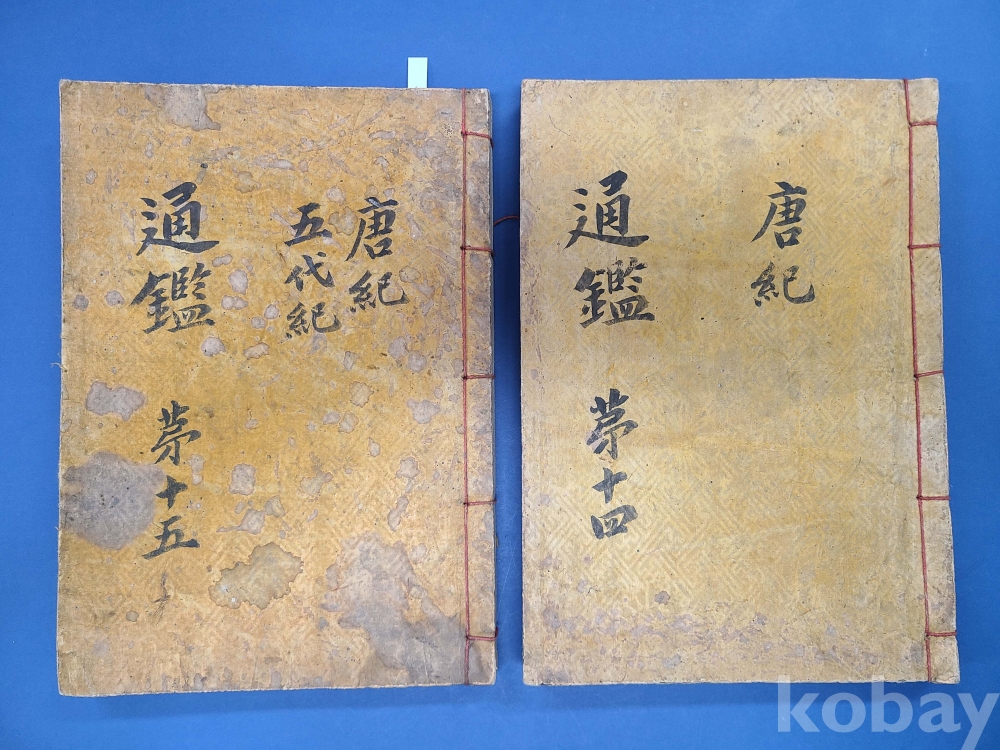 唐紀
五代紀
通鑑 第十五
唐紀
通鑑 第十四
kobay